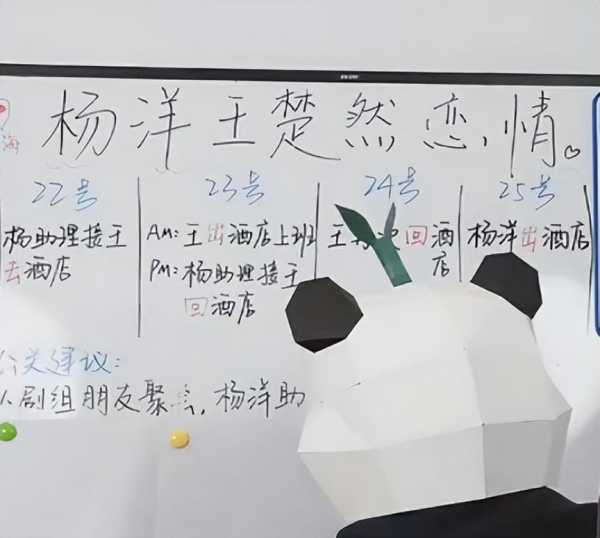 海
杨洋王楚然恋情。
22号
杨助理接王
去酒店
23号
AM: 王出酒店上班
PM: 杨助理接王
回酒店
24号
王 回酒
店
25号
杨洋出酒店
公关建议:
剧组朋友聚，杨洋助